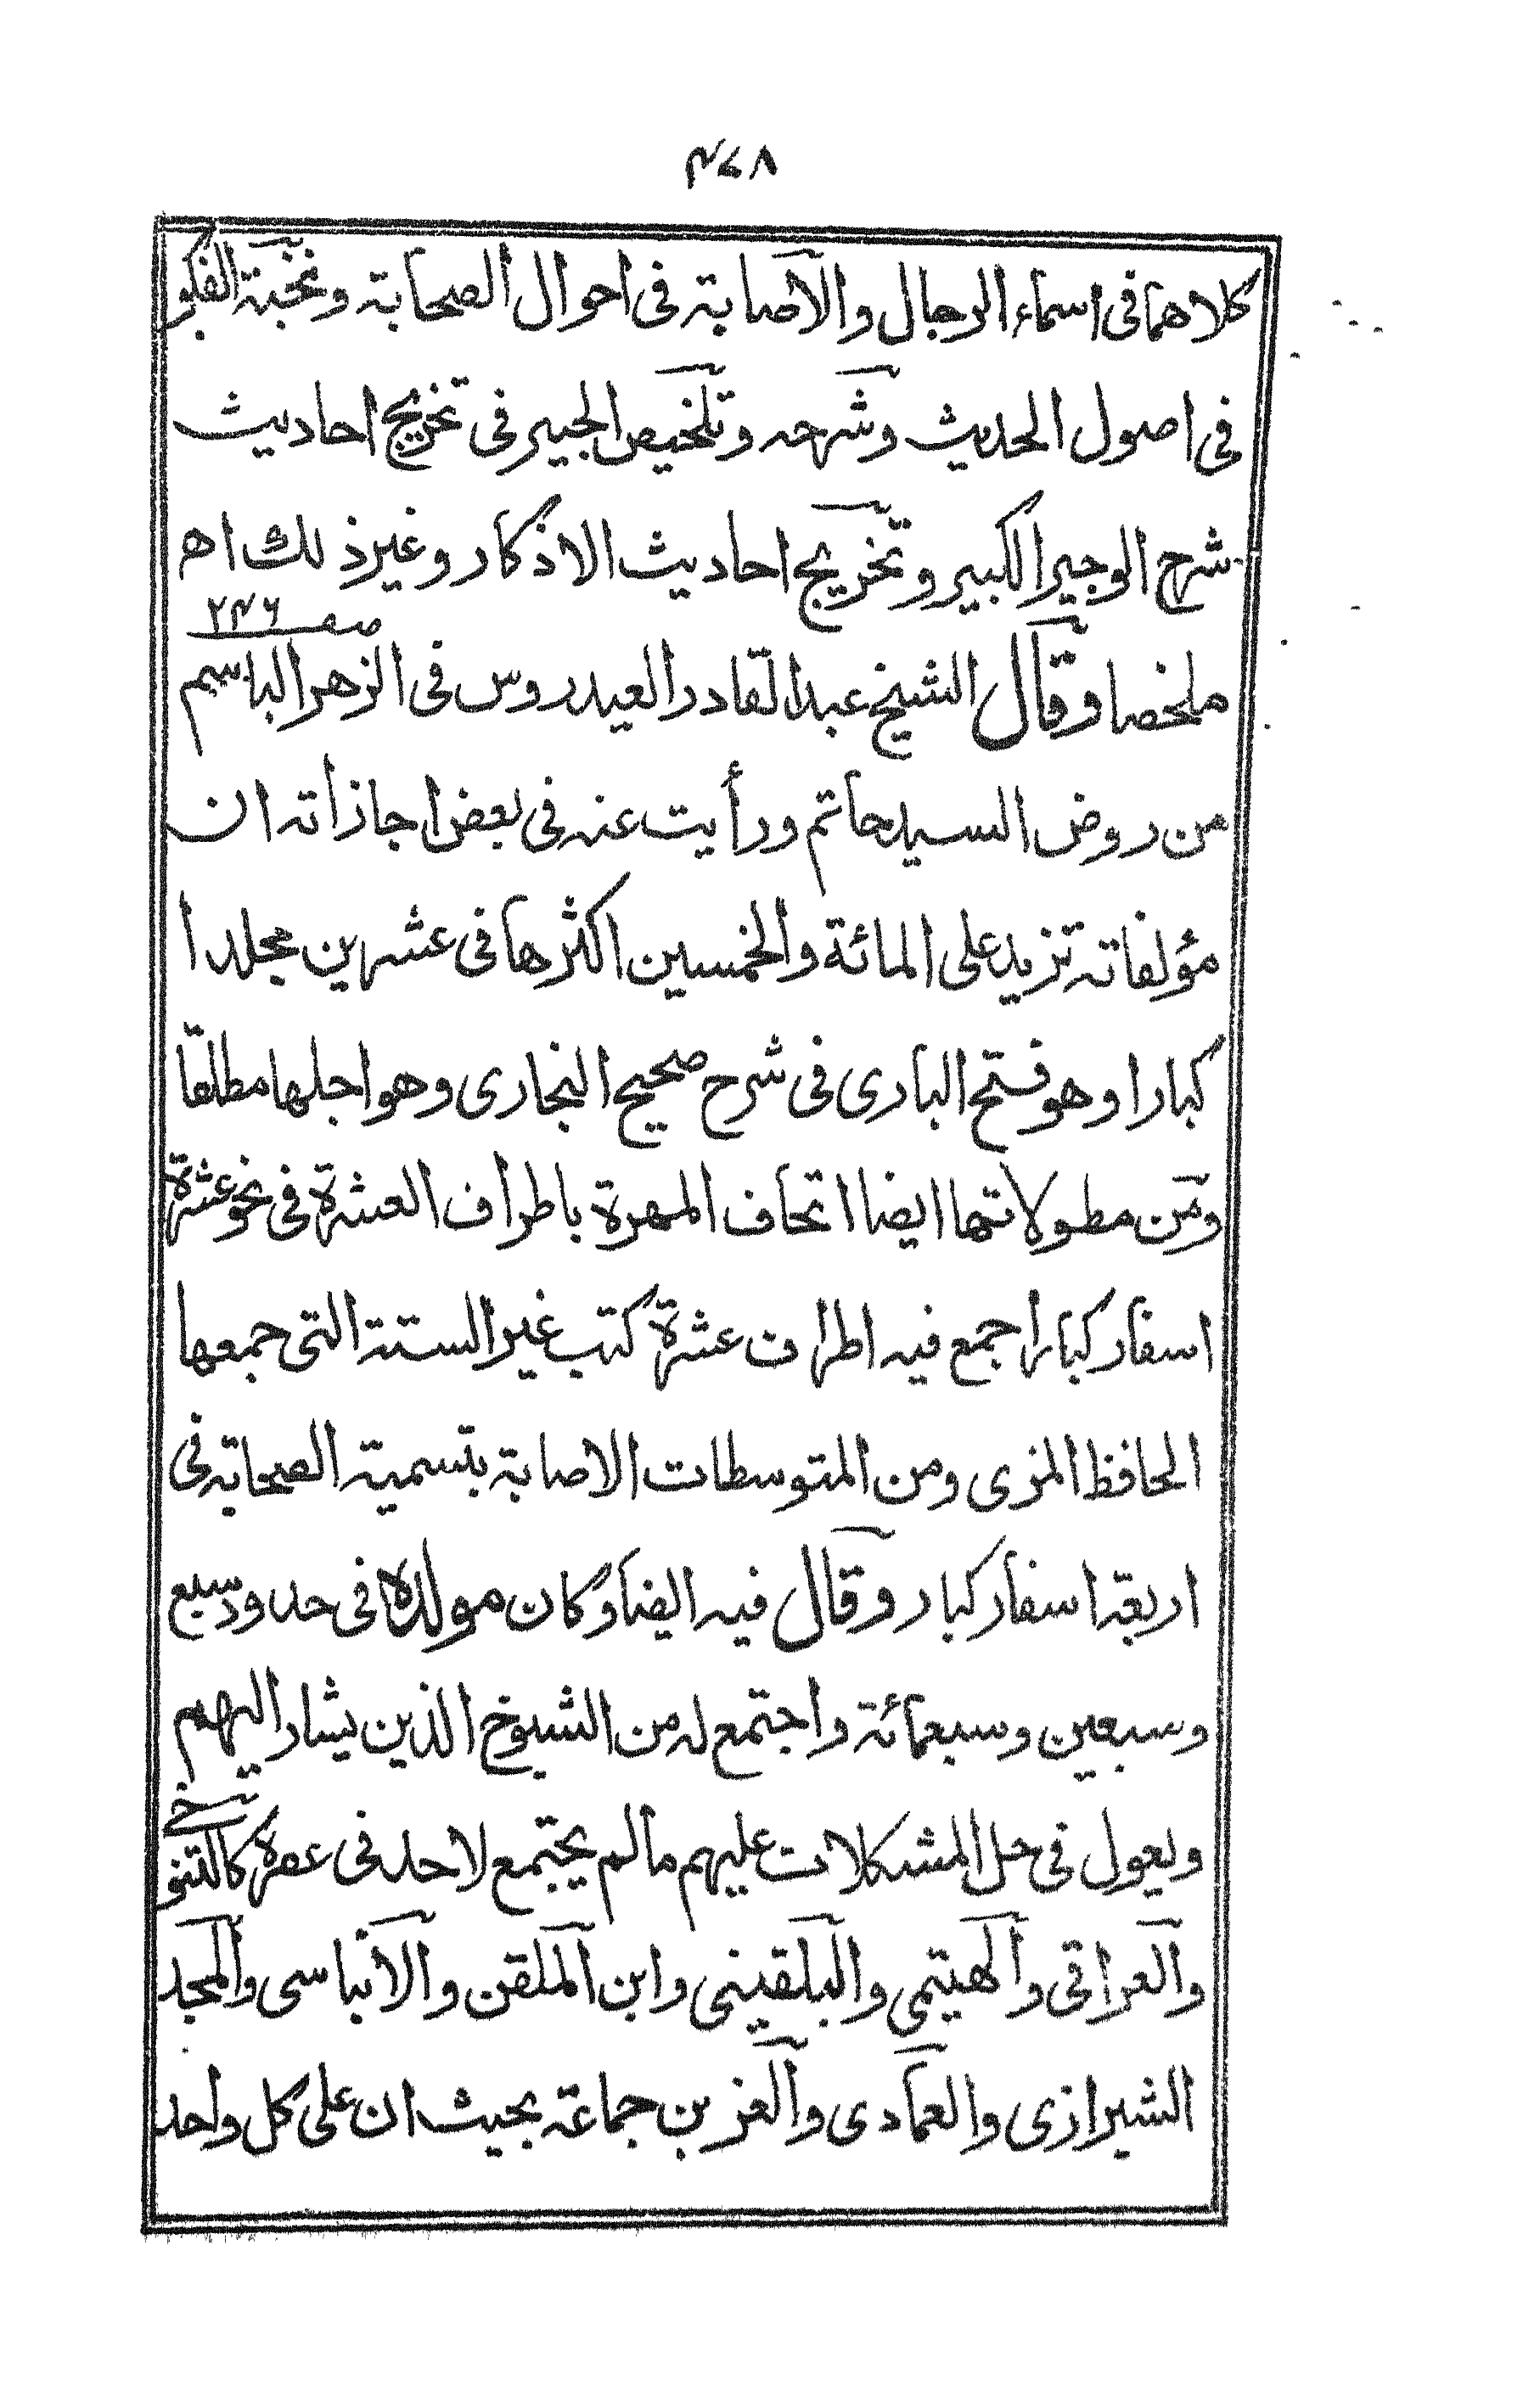 ٤٤٨
كلاهما فى اسماء الرجال والاصابة فى احوال الصحابة ونخبة الفكر
فى اصول الحديث وشرحه وتلخيص الحبير فى تخريج احاديث
شرح الوجيز الكبير وتخريج احاديث الاذكار وغير ذلك اهـ
صـ ٢٤٦
ملخصا وقال الشيخ عبدالقادر العيدروس فى الزهر الباسم
من روض السيد حاتم ورأيت عنه فى بعض اجازاته ان
مؤلفاته تزيد على المائة والخمسين اكثرها فى عشرين مجلدا
كبارا وهو فتح البارى فى شرح صحيح البخارى وهو اجلها مطلقا
ومن مطولاتها ايضا اتحاف المهرة باطراف العشرة فى نحو عشرة
اسفار كبار اجمع فيه اطراف عشرة كتب غير الستة التى جمعها
الحافظ المزى ومن المتوسطات الاصابة بتسمية الصحابة فى
اربعة اسفار كبار وقال فيه ايضا وكان مولده فى حدود سبع
وسبعين وسبعمائة واجتمع له من الشيوخ الذين يشار اليهم
ويعول فى حل المشكلات عليهم مالم يجتمع لاحد فى عصره كالتنوخى
والعراقى والهيتمى والبلقينى وابن الملقن والانباسى والمجد
الشيرازى والعمادى والعز بن جماعة بحيث ان على كل واحد